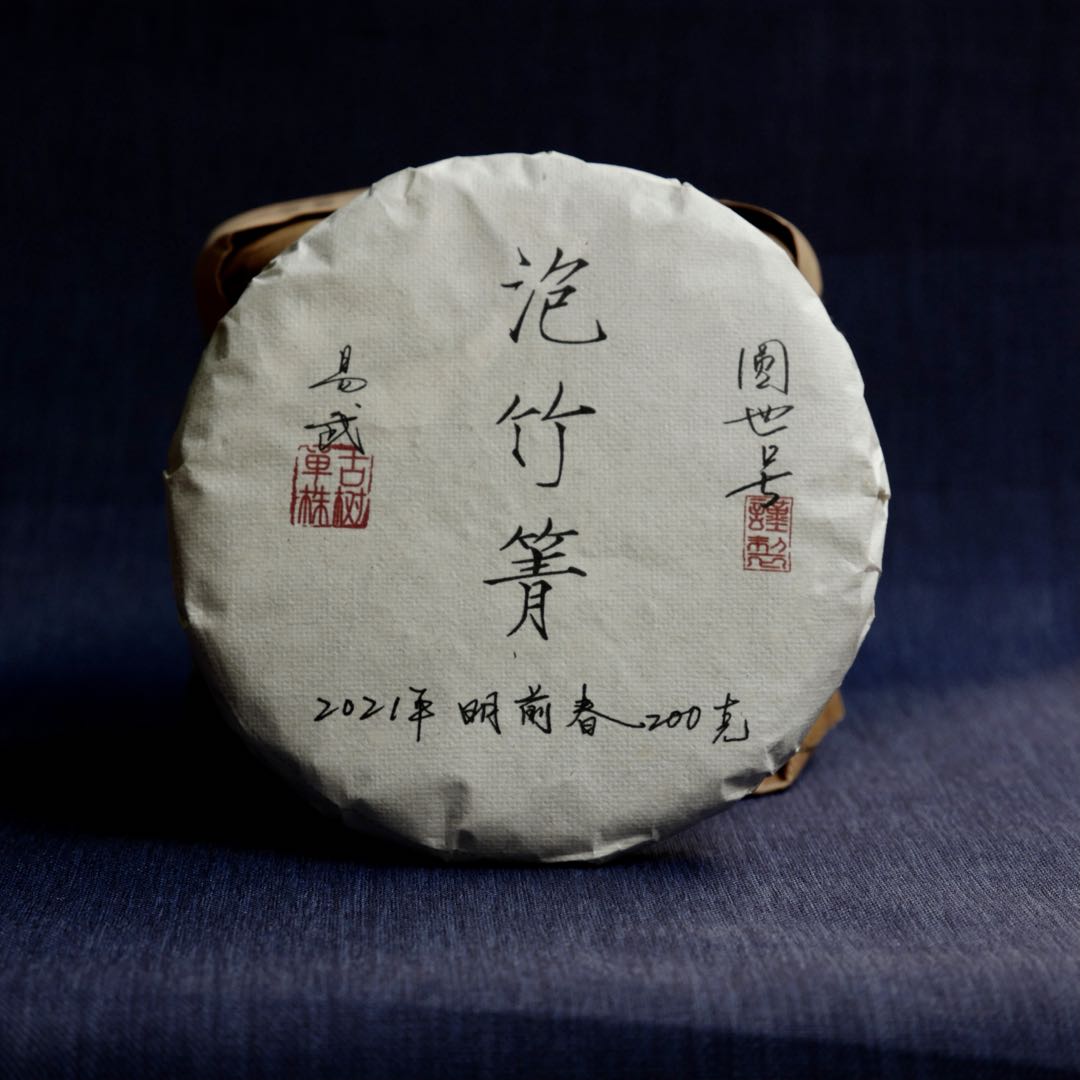 圆世号
謹製
泡竹箐
易武
古树
单株
2021年 明前春 200克